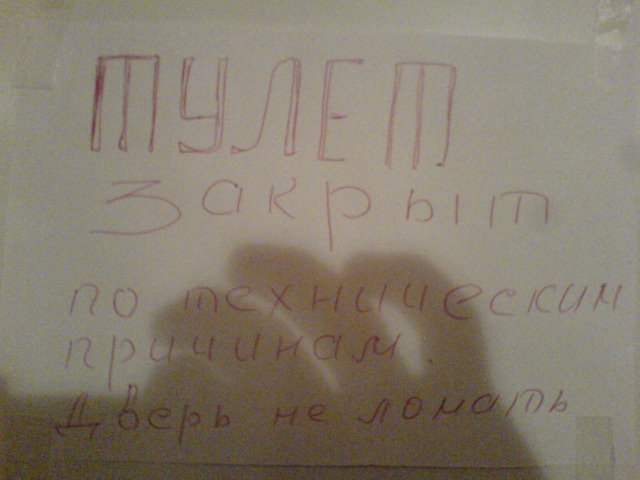 ТУЛЕТ
закрыт
по техническим
причинам.
Дверь не ломать